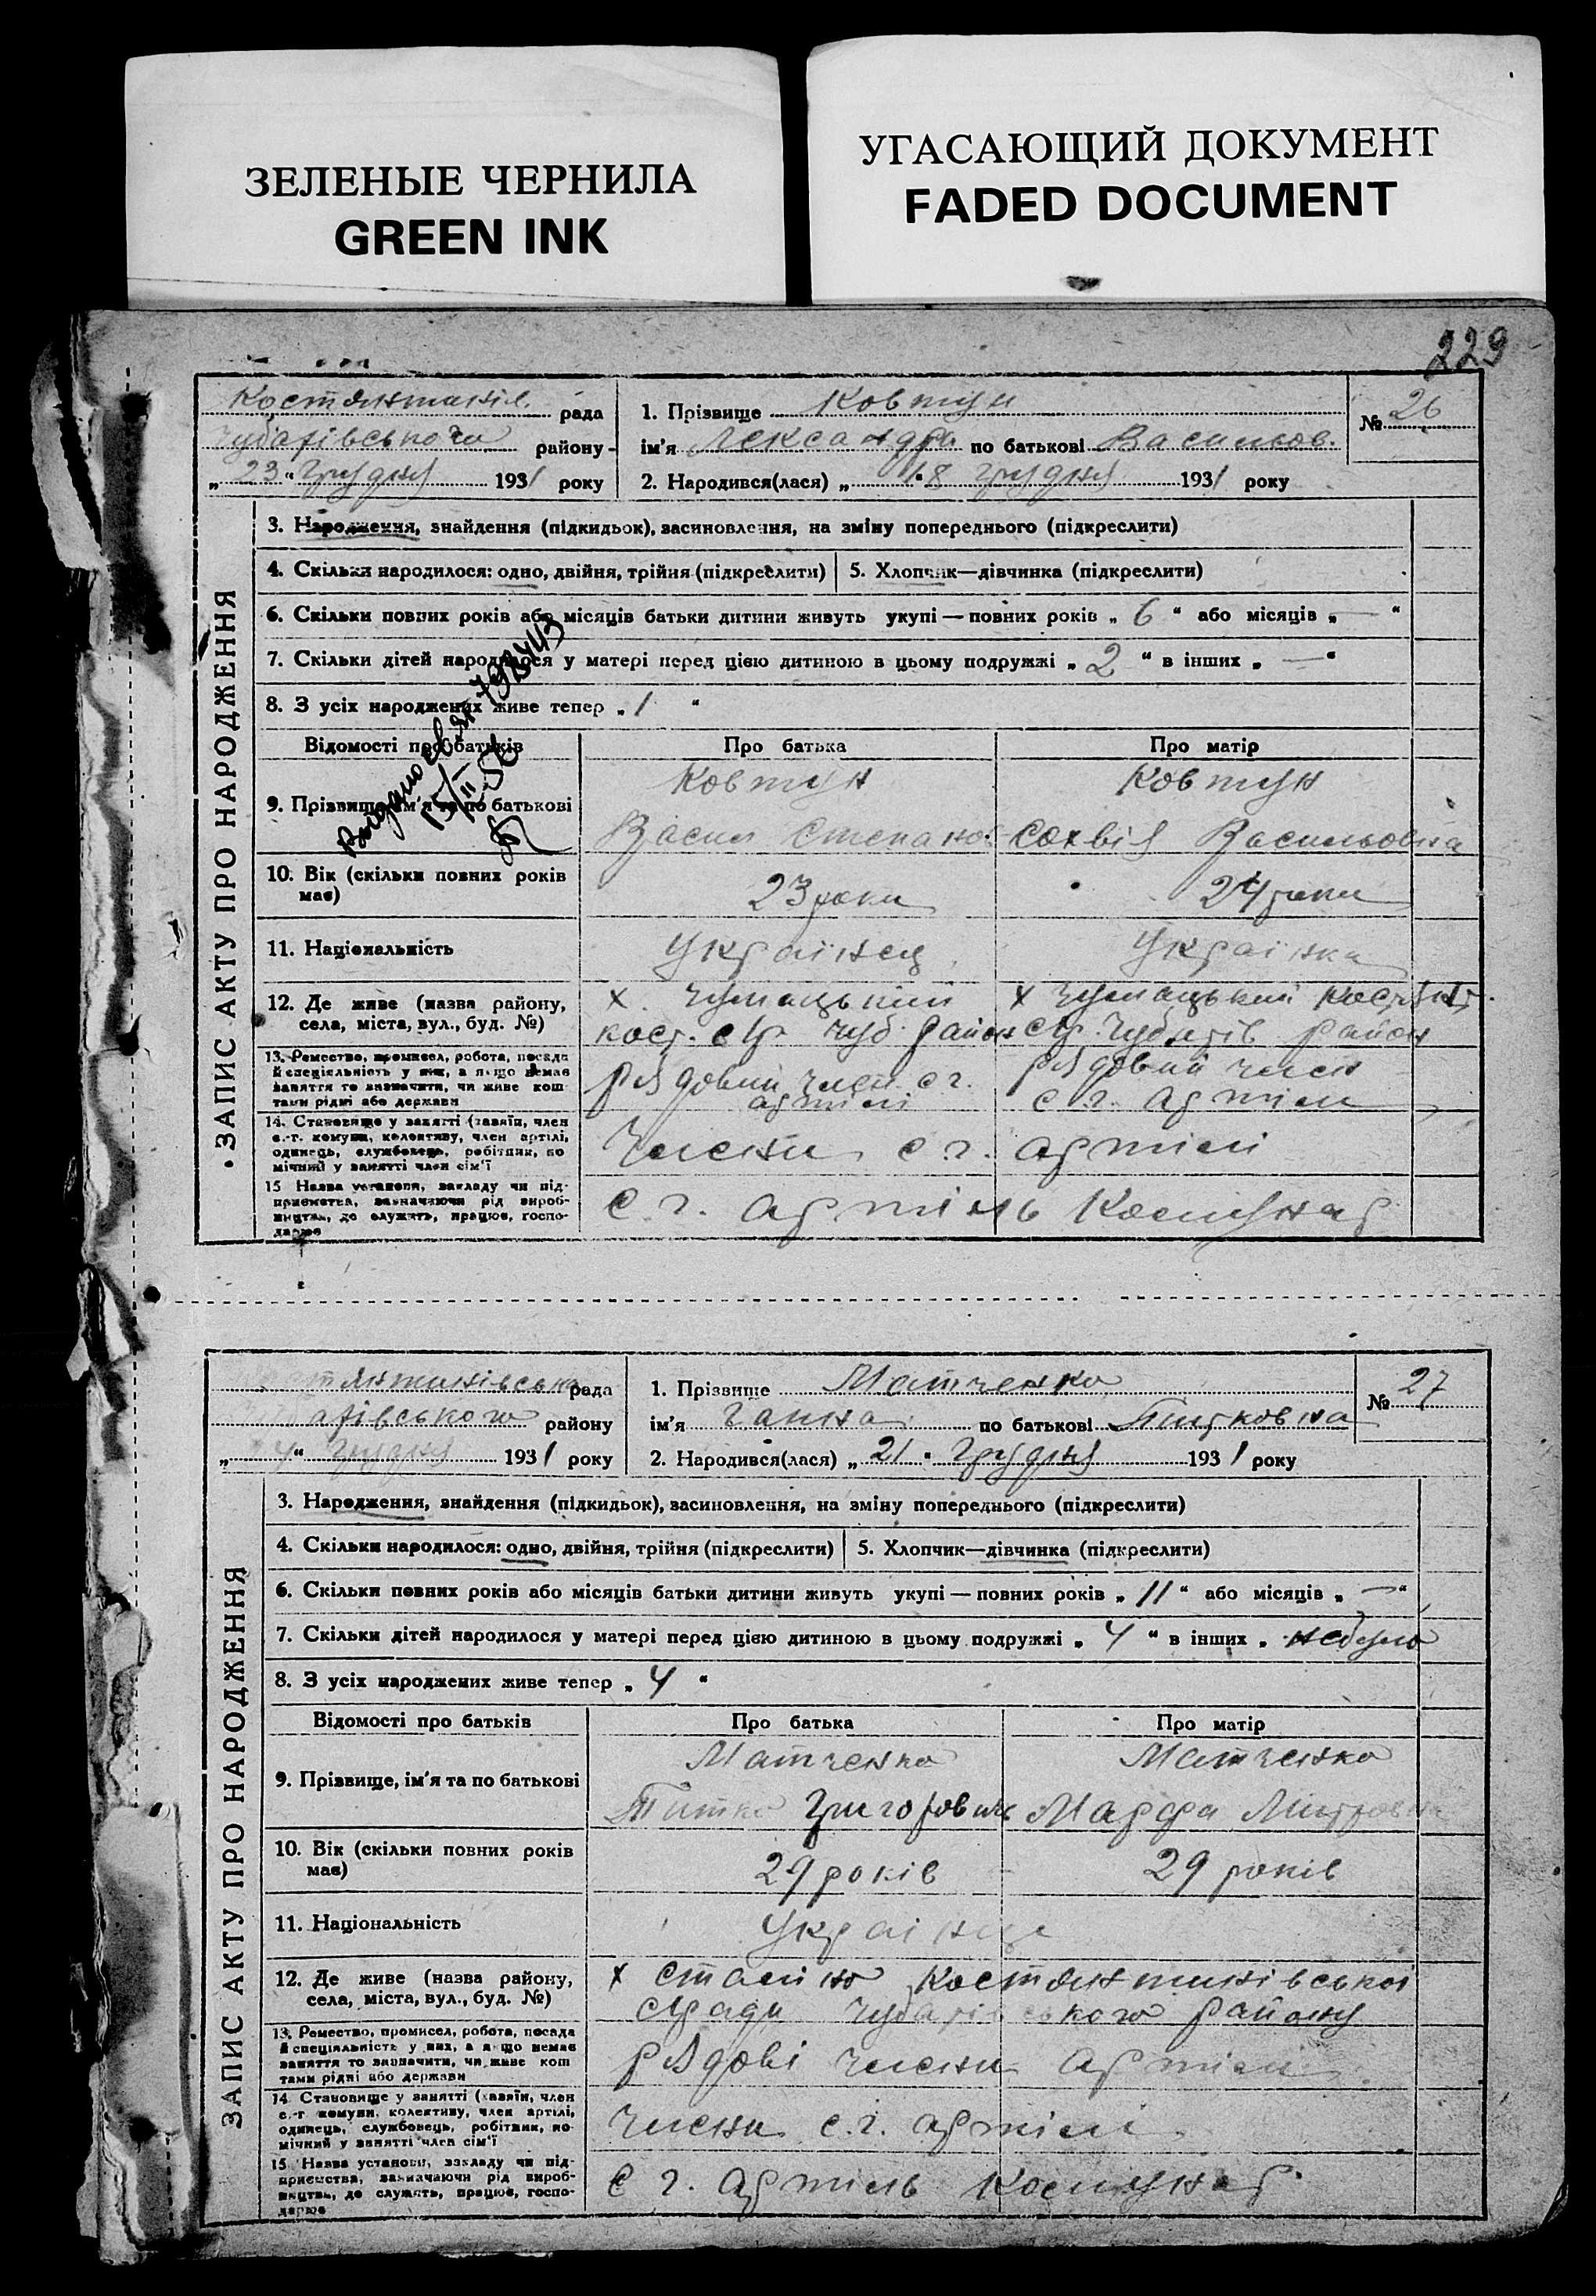 ЗЕЛЕНЫЕ ЧЕРНИЛА
GREEN INK
УГАСАЮЩИЙ ДОКУМЕНТ
FADED DOCUMENT
229
ЗАПИС АКТУ ПРО НАРОДЖЕННЯ
Костянтинів. рада
Чубарівського району
„23“ Грудня 1931 року
1. Прізвище Ковтун
№ 26
ім'я по батькові Васильов.
2. Народився(лася) „18 грудня 1931 року
3. Народження, знайдення (підкидьок), засиновлення, на зміну попереднього (підкреслити)
4. Скільки народилося: одно, двійня, трійня (підкреслити) 5. Хлопчик—дівчинка (підкреслити)
6. Скільки повних років або місяців батьки дитини живуть укупі — повних років „ 6 “ або місяців „ — “
7. Скільки дітей народилося у матері перед цією дитиною в цьому подружжі „ 2 “ в інших „ — “
8. З усіх народжених живе тепер „ 1 “
Відомості про батьків Про батька Про матір
9. Прізвище, ім'я та по батькові
Ковтун Ковтун
Васил Степанов. Васильовна
10. Вік (скільки повних років має) 23 роки 24 роки
11. Національність Українец Українка
12. Де живе (назва району, села, міста, вул., буд. №)
х. Чумацький х Чумацький
кост. с/р Чуб. район с/р. Чубарів район
13. Ремество, промисел, робота, посада й спеціяльність у них, а якщо немає заняття то зазначити, чи живе коштами рідні або держави
рядовий член с г. артілі рядовий член с. г. артіли
14. Становище у занятті (хазяїн, член с.-г. комуни, колективу, член артілі, одинець, службовець, робітник, помічний у занятті член сім'ї
Члени с. г. артілі
15 Назва установи, закладу чи підприємства, зазначаючи рід виробництва, де служить, працює, господарює
с. г. артіль Комунар
ЗАПИС АКТУ ПРО НАРОДЖЕННЯ
тянтинівська рада
арівського району
грудня 1931 року
1. Прізвище Матченко
№ 27
ім'я Ганна по батькові Титковна
2. Народився(лася) „ 21 “ Грудня 1931 року
3. Народження, знайдення (підкидьок), засиновлення, на зміну попереднього (підкреслити)
4. Скільки народилося: одно, двійня, трійня (підкреслити) 5. Хлопчик—дівчинка (підкреслити)
6. Скільки повних років або місяців батьки дитини живуть укупі — повних років „ 11 “ або місяців „ — “
7. Скільки дітей народилося у матері перед цією дитиною в цьому подружжі „ 4 “ в інших „ небуло
8. З усіх народжених живе тепер „ 4 “
Відомості про батьків Про батька Про матір
9. Прізвище, ім'я та по батькові
Матченко Матченко
Титко Григорович Марфа
10. Вік (скільки повних років має) 29 років 29 років
11. Національність Українце
12. Де живе (назва району, села, міста, вул., буд. №)
х Сталіно Костянтинівської
с/ради Чубарівського району
13. Ремество, промисел, робота, посада й спеціяльність у них, а якщо немає заняття то зазначити, чи живе коштами рідні або держави
рядові члени артілі
14 Становище у занятті (хазяїн, член с.-г комуни, колективу, член артілі, одинець, службовець, робітник, помічний у занятті член сім'ї
члени с. г. артілі
15. Назва установи, закладу чи підприємства, зазначаючи рід виробництва, де служить, працює, господарює
с г. артіль Комунар